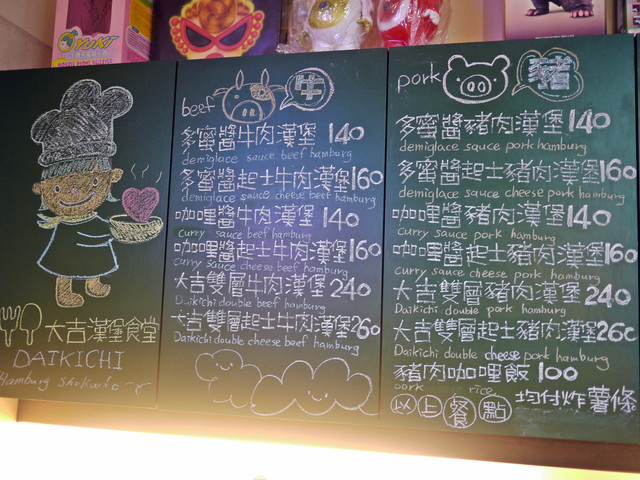 YUKI
大吉漢堡食堂
DAIKICHI
Hamburg
beef
牛
多蜜醬牛肉漢堡 140
demiglace sauce beef hamburg
多蜜醬起士牛肉漢堡 160
demiglace sauce cheese beef hamburg
咖哩醬牛肉漢堡 140
curry sauce beef hamburg
咖哩醬起士牛肉漢堡 160
curry sauce cheese beef hamburg
大吉雙層牛肉漢堡 240
Daikichi double beef hamburg
大吉雙層起士牛肉漢堡 260
Daikichi double cheese beef hamburg
pork
豬
多蜜醬豬肉漢堡 140
demiglace sauce pork hamburg
多蜜醬起士豬肉漢堡 160
demiglace sauce cheese pork hamburg
咖哩醬豬肉漢堡 140
curry sauce pork hamburg
咖哩醬起士豬肉漢堡 160
curry sauce cheese pork hamburg
大吉雙層豬肉漢堡 240
Daikichi double pork hamburg
大吉雙層起士豬肉漢堡 260
Daikichi double cheese pork hamburg
豬肉咖哩飯 100
pork rice
以上餐點 均付炸薯條